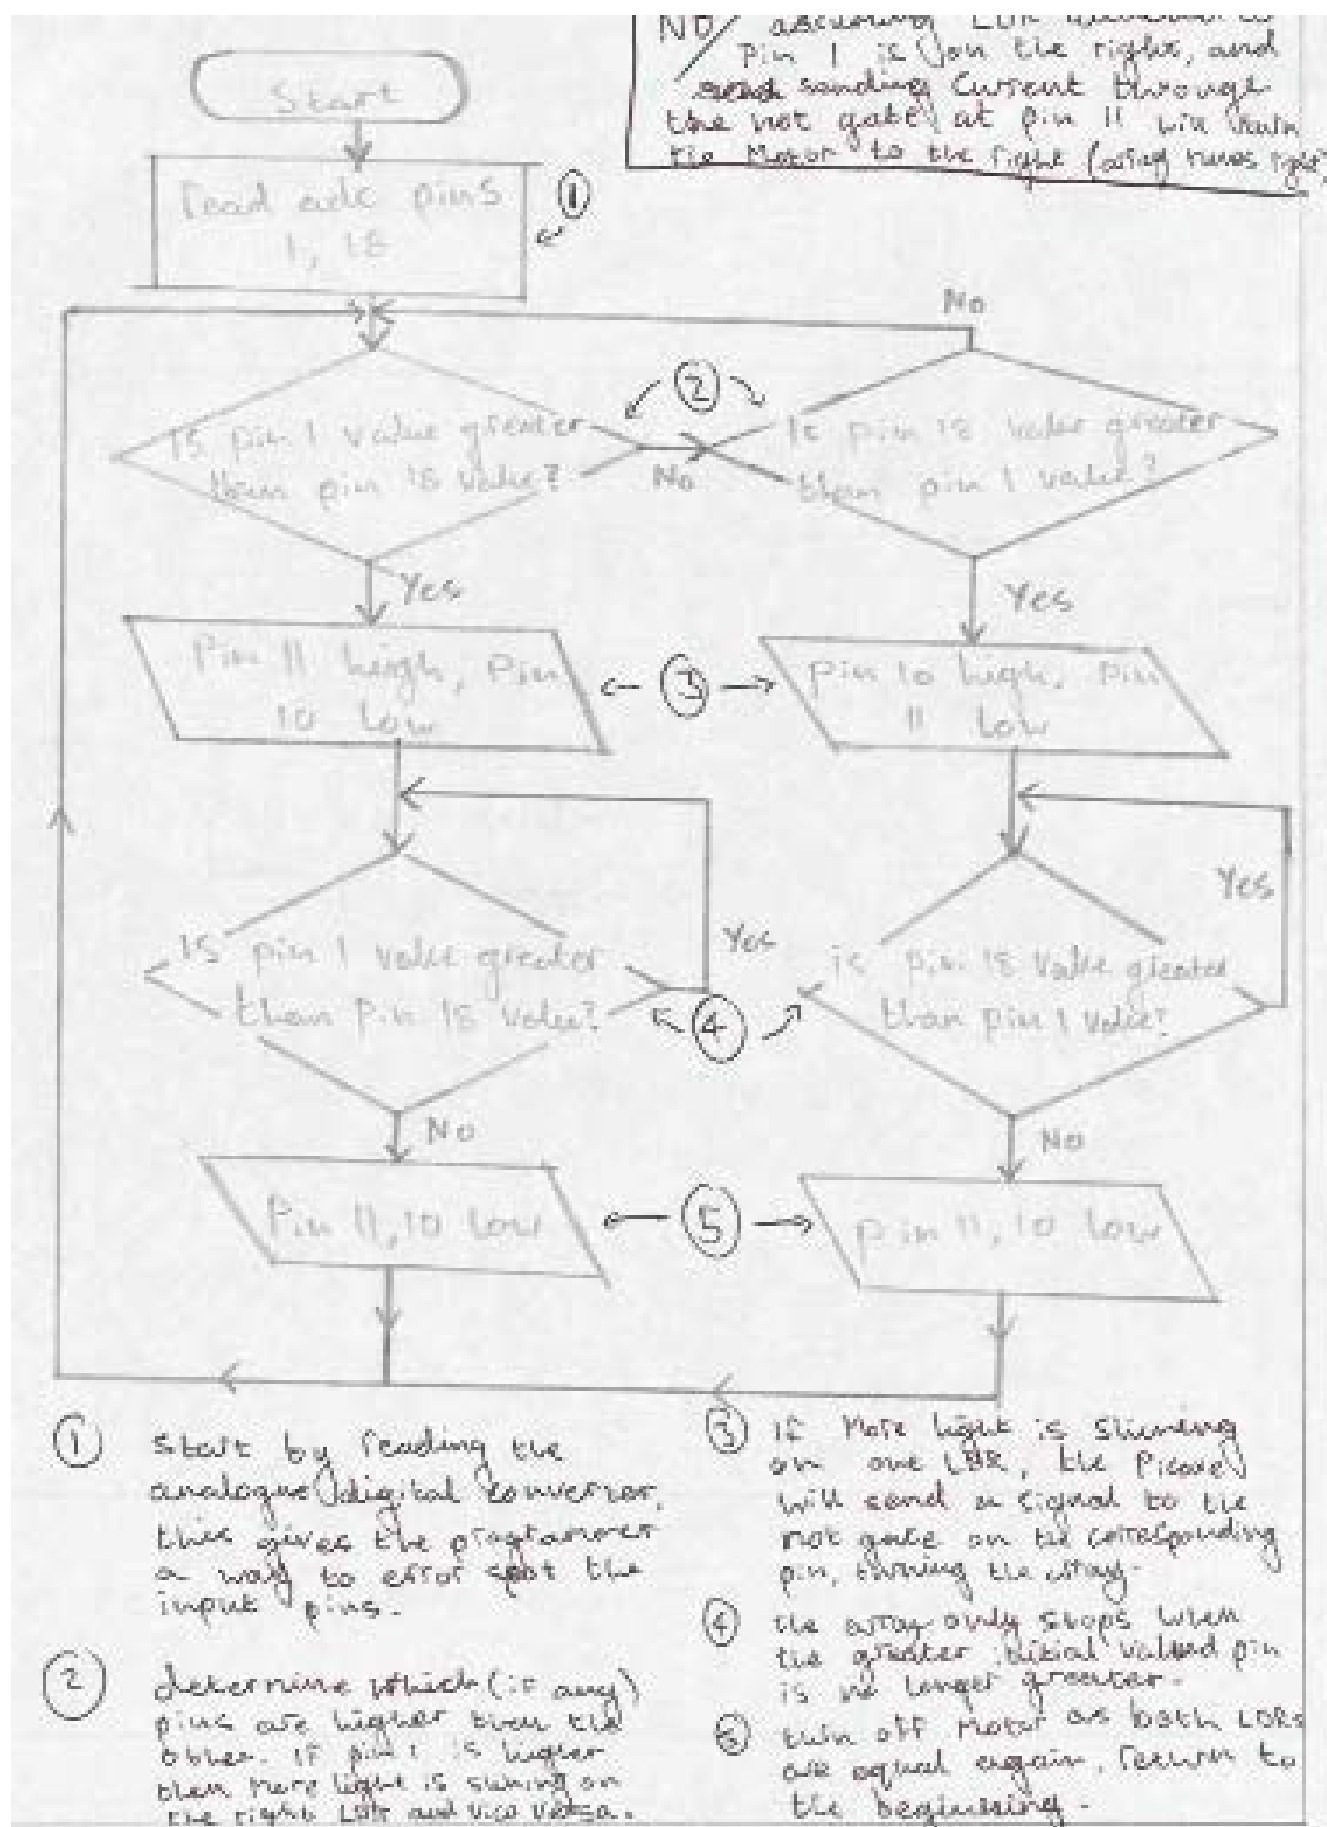 NO/ assuming LDR
Pin 1 is on the right, and
sending Current through
the not gate at pin 11 will
the Motor to the right (array turns right)
Start
read adc pins
1, 18
①
No
②
Is pin 1 value greater
than pin 18 value?
No
Is pin 18 value greater
than pin 1 value?
Yes
Yes
Pin 11 high, Pin
10 Low
③
pin 10 high, pin
11 Low
Yes
Yes
Is pin 1 value greater
than Pin 18 value?
④
is pin 18 value greater
than pin 1 value?
No
No
Pin 11, 10 Low
⑤
pin 11, 10 Low
① start by reading the
analogue/digital convertor,
this gives the programmer
a way to error spot the
input pins.
② determine which (if any)
pins are higher than the
other. if pin 1 is higher
then more light is shining on
the right LDR and vice versa.
③ if More light is Shining
on one LDR, the Picaxe
will send a signal to the
not gate on the corresponding
pin, turning the array.
④ the array only stops when
the greater initial valued pin
is no longer greater.
⑤ turn off Motor as both LDRs
are equal again, return to
the beginning.